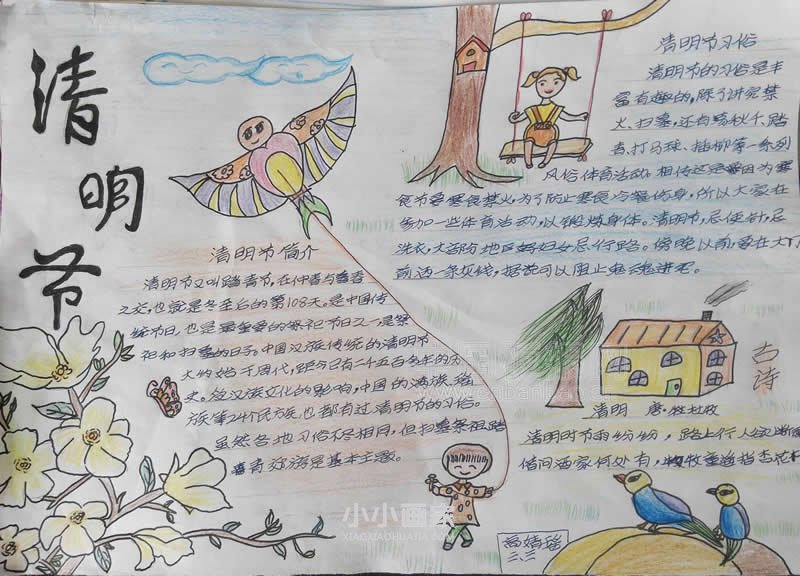 清明节
清明节简介
清明节又叫踏青节,在仲春与暮春
之交,也就是冬至后的第108天。是中国传
统节日,也是最重要的祭祀节日之一,是祭
祖和扫墓的日子。中国汉族传统的清明节
大约始于周代,距今已有二千五百多年的历
史。受汉族文化的影响,中国的满族、
族等24个民族,也都有过清明节的习俗。
虽然各地习俗不尽相同,但扫墓祭祖、踏
青郊游是基本主题。
清明节习俗
清明节的习俗是丰
富有趣的,除了讲究禁
火、扫墓,还有荡秋千、踏
青、打马球、插柳等一系列
风俗体育活动。相传这是因为寒
食节要寒食禁火,为了防止寒食冷餐伤身,所以大家来
参加一些体育活动,以锻炼身体。清明节,忌使针,忌
洗衣,大部分地区妇女忌行路。傍晚以前,要在大门
前洒一条灰线,据说可以阻止鬼魂进宅。
古诗
清明 唐·杜牧
清明时节雨纷纷,路上行人欲断魂
借问酒家何处有,牧童遥指杏花村
高婧瑶
三、三
小小画家
XIAOXIAOHUAJIA.COM